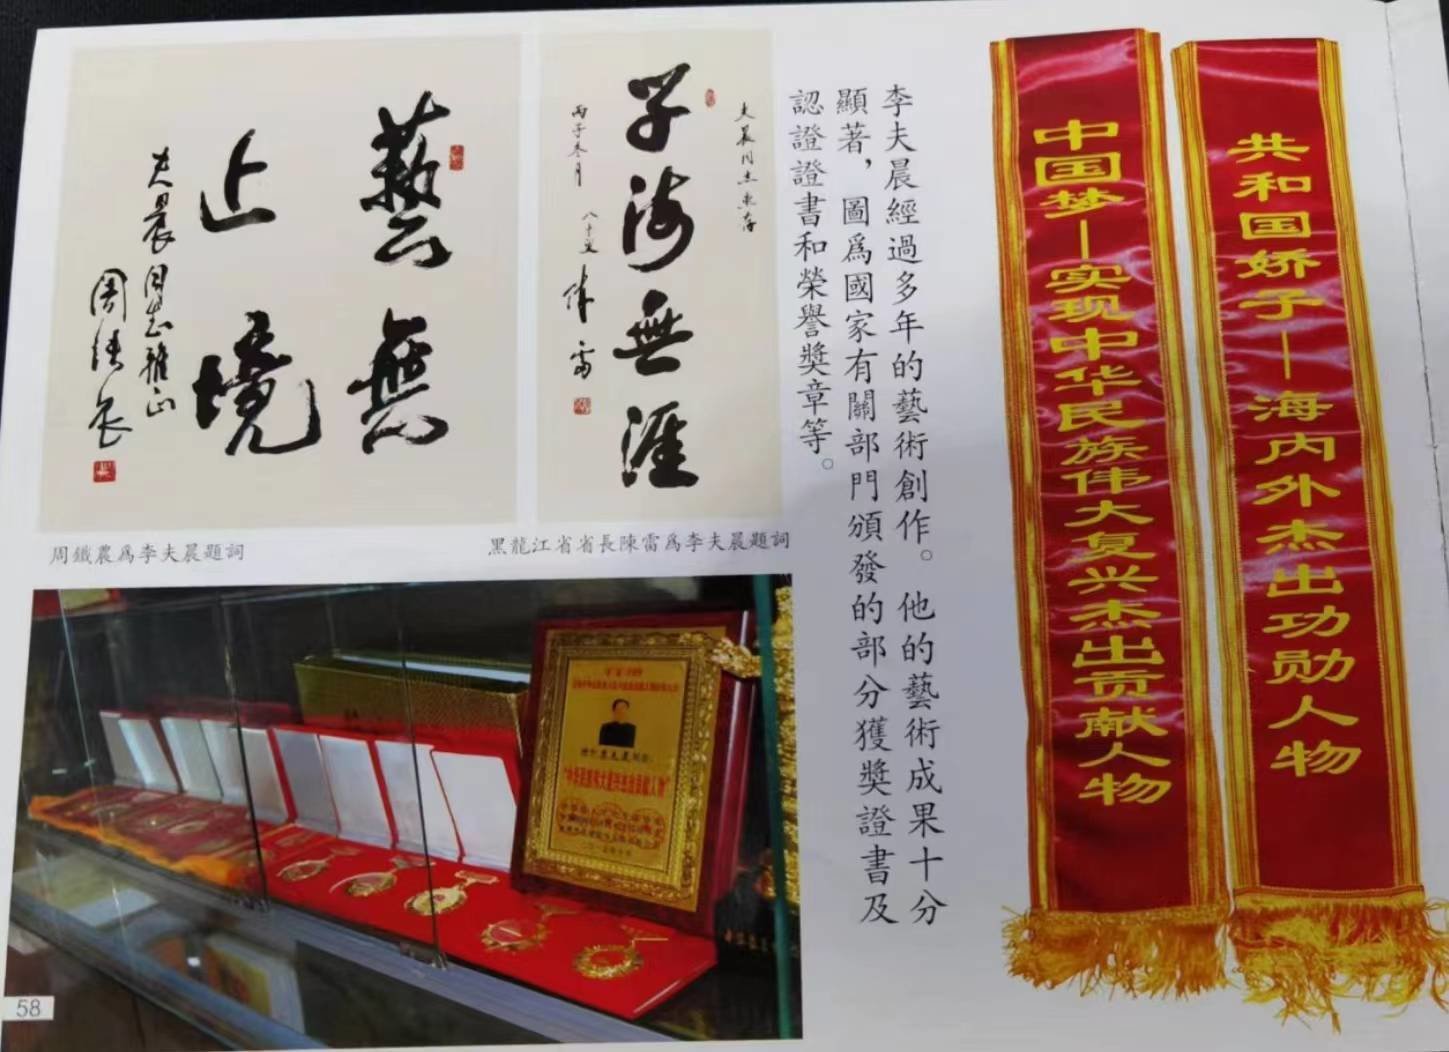 藝無
止境
夫晨同志雅正
周鐵农
夫晨同志惠存
学海無涯
丙子冬月
八十叟
陳雷
周鐵農爲李夫晨題詞
黑龍江省省長陳雷爲李夫晨題詞
李夫晨經過多年的藝術創作。他的藝術成果十分
顯著，圖爲國家有關部門頒發的部分獲獎證書及
認證證書和榮譽獎章等。
共和国娇子—海内外杰出功勋人物
中国梦—实现中华民族伟大复兴杰出贡献人物
58